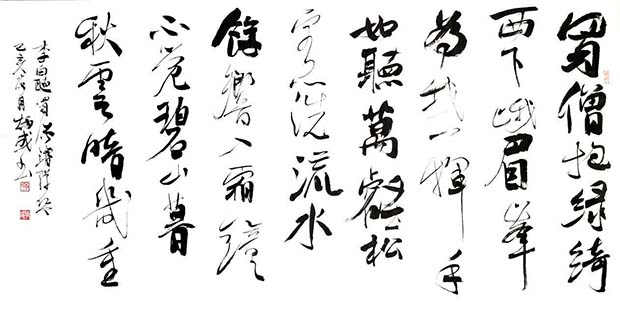 蜀僧抱绿绮
西下峨眉峯
為我一揮手
如聽萬壑松
客心洗流水
餘響入霜鐘
不覺碧山暮
秋雲暗幾重
李白聽蜀僧濬彈琴
己亥 月